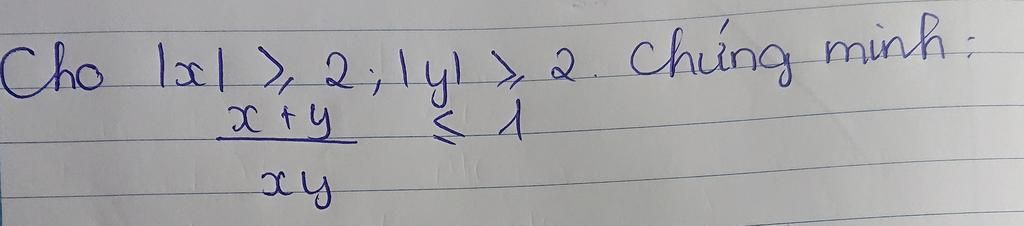 Cho |x| ⩾ 2; |y| ⩾ 2. Chứng minh:
x + y / xy ≤ 1